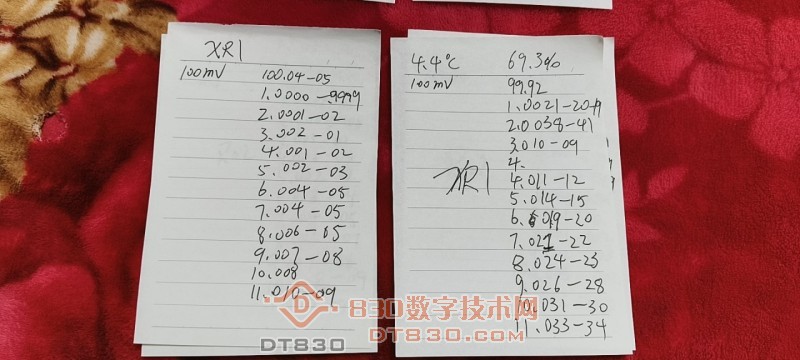 XR1
100mV 100.04-05
1.0000-.9999
2.0001-02
3.002-01
4.001-02
5.002-03
6.004-05
7.004-05
8.006-05
9.007-08
10.008
11.010-09
4.4℃ 69.3%
100mV 99.92
1.0021-20
2.0038-41
3.010-09
4.
XR1
4.011-12
5.014-15
6.019-20
7.021-22
8.024-25
9.026-28
10.031-30
11.033-34
830数字技术网
DT830.COM